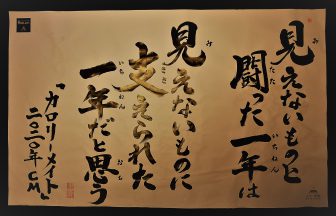 見えないものと
闘った一年は
見えないものに
支えられた
一年だと思う
「カロリーメイト」
二〇二〇年CM